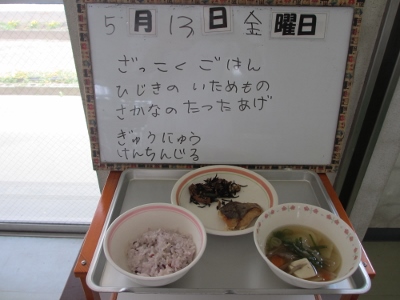 5月13日金曜日
ざっこくごはん
ひじきのいためもの
さかなのたつたあげ
ぎゅうにゅう
けんちんじる